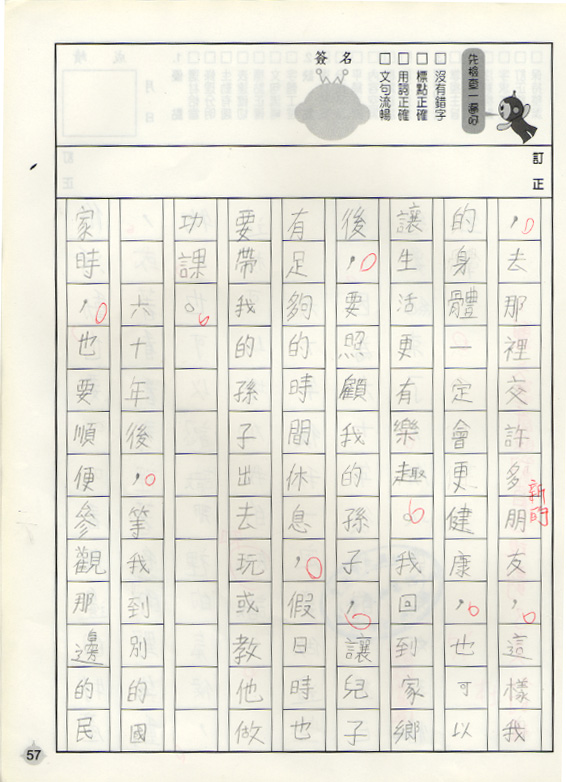 先檢查一遍
□沒有錯字
□標點正確
□用詞正確
□文句流暢
簽名
訂正
，去那裡交許多朋友，這樣我
新的
的身體一定會更健康，也可以
讓生活更有樂趣。我回到家鄉
後，要照顧我的孫子，讓兒子
有足夠的時間休息，假日時也
要帶我的孫子出去玩或教他做
功課。
六十年後，等我到別的國
家時，也要順便參觀那邊的民
57